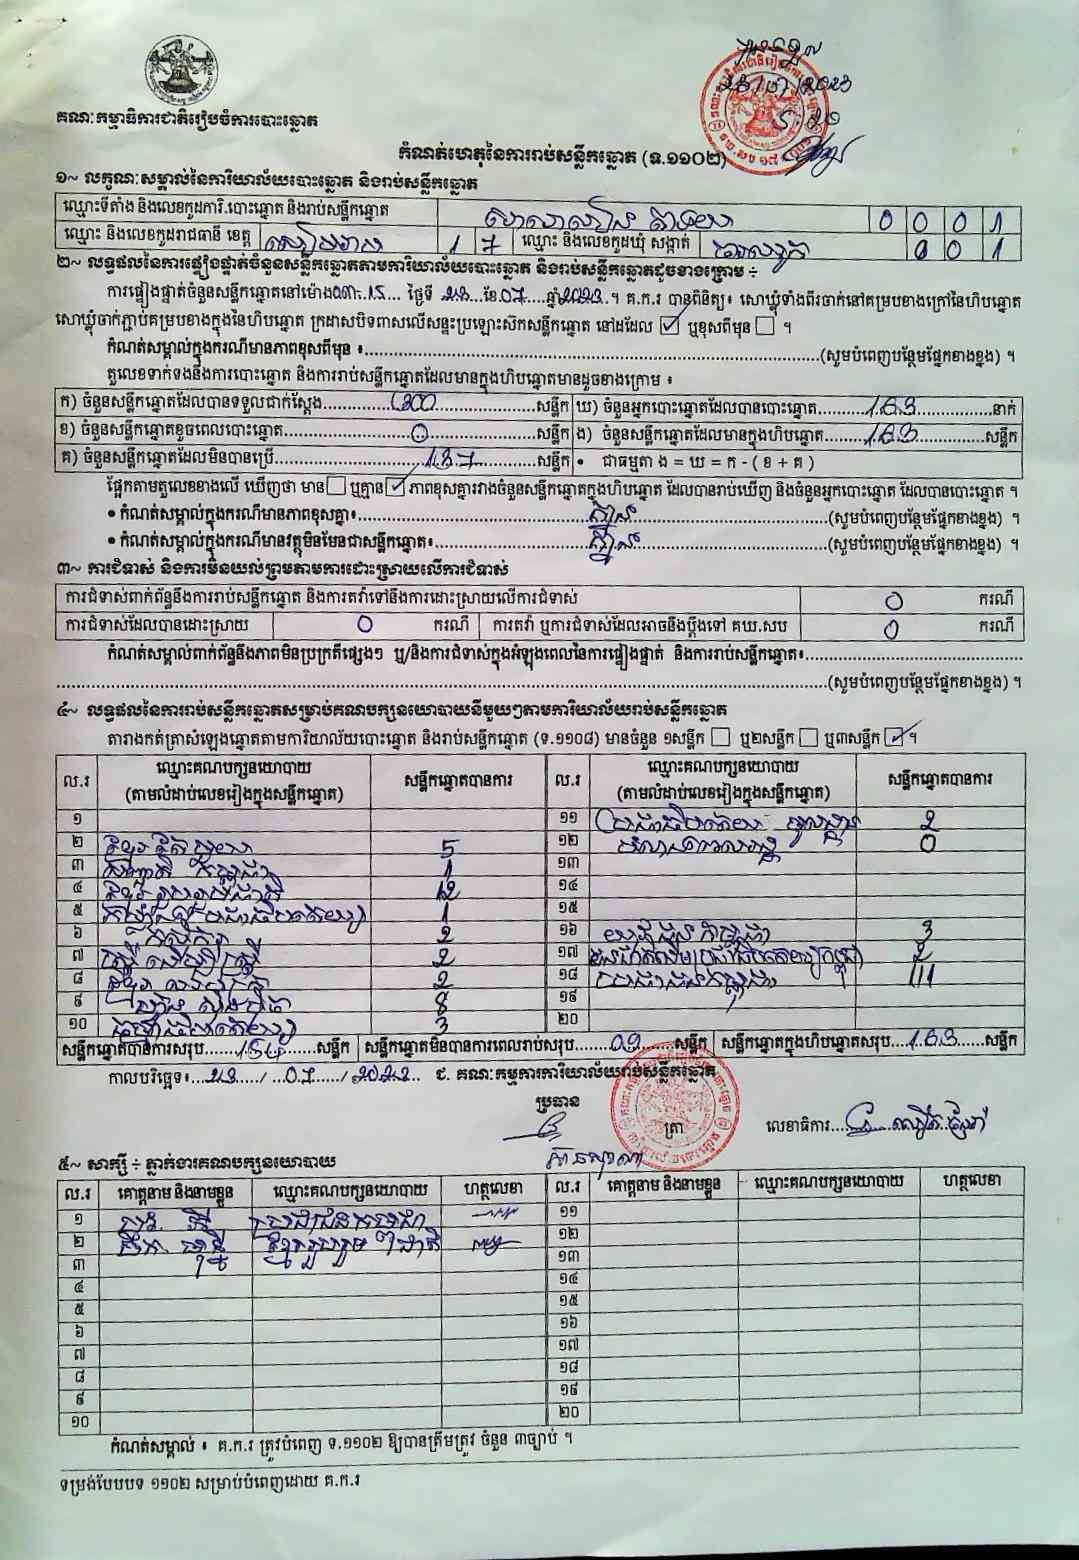 គណៈកម្មាធិការជាតិរៀបចំការបោះឆ្នោត
កំណត់ហេតុនៃការរាប់សន្លឹកឆ្នោត (ទ.១១០២)
១~ លក្ខណៈសម្គាល់នៃការិយាល័យបោះឆ្នោត និងរាប់សន្លឹកឆ្នោត
ឈ្មោះទីតាំង និងលេខកូដការិ.បោះឆ្នោត និងរាប់សន្លឹកឆ្នោត 0 0 0 1
ឈ្មោះ និងលេខកូដរាជធានី ខេត្ត សៀមរាប 1 7 ឈ្មោះ និងលេខកូដឃុំ សង្កាត់ 0 0 1
២~ លទ្ធផលនៃការផ្ទៀងផ្ទាត់ចំនួនសន្លឹកឆ្នោតតាមការិយាល័យបោះឆ្នោត និងរាប់សន្លឹកឆ្នោតដូចខាងក្រោម ÷
ការផ្ទៀងផ្ទាត់ចំនួនសន្លឹកឆ្នោតនៅម៉ោង ០៣:១៥ ថ្ងៃទី ២៣ ខែ ០៧ ឆ្នាំ ២០២៣ ។ គ.ក.រ បានពិនិត្យ៖ សោឃ្លុំទាំងពីរចាក់នៅគម្របខាងក្រៅនៃហិបឆ្នោត
សោឃ្លុំចាក់ភ្ជាប់គម្របខាងក្នុងនៃហិបឆ្នោត ក្រដាសបិទពាសលើសន្ទះប្រឡោះស៊កសន្លឹកឆ្នោត នៅដដែល ☑ ឬខុសពីមុន ☐ ។
កំណត់សម្គាល់ក្នុងករណីមានភាពខុសពីមុន ៖ (សូមបំពេញបន្ថែមផ្នែកខាងខ្នង) ។
តួលេខទាក់ទងនឹងការបោះឆ្នោត និងការរាប់សន្លឹកឆ្នោតដែលមានក្នុងហិបឆ្នោតមានដូចខាងក្រោម ៖
ក) ចំនួនសន្លឹកឆ្នោតដែលបានទទួលជាក់ស្តែង 300 សន្លឹក ឃ) ចំនួនអ្នកបោះឆ្នោតដែលបានបោះឆ្នោត 163 នាក់
ខ) ចំនួនសន្លឹកឆ្នោតខូចពេលបោះឆ្នោត 0 សន្លឹក ង) ចំនួនសន្លឹកឆ្នោតដែលមានក្នុងហិបឆ្នោត 163 សន្លឹក
គ) ចំនួនសន្លឹកឆ្នោតដែលមិនបានប្រើ 137 សន្លឹក • ជាធម្មតា ង = ឃ = ក - ( ខ + គ )
ផ្អែកតាមតួលេខខាងលើ ឃើញថា មាន ☐ ឬគ្មាន ☑ ភាពខុសគ្នារវាងចំនួនសន្លឹកឆ្នោតក្នុងហិបឆ្នោត ដែលបានរាប់ឃើញ និងចំនួនអ្នកបោះឆ្នោត ដែលបានបោះឆ្នោត ។
• កំណត់សម្គាល់ក្នុងករណីមានភាពខុសគ្នា៖ គ្មាន (សូមបំពេញបន្ថែមផ្នែកខាងខ្នង) ។
• កំណត់សម្គាល់ក្នុងករណីមានវត្ថុមិនមែនជាសន្លឹកឆ្នោត៖ គ្មាន (សូមបំពេញបន្ថែមផ្នែកខាងខ្នង) ។
៣~ ការជំទាស់ និងការមិនយល់ព្រមតាមការដោះស្រាយលើការជំទាស់
ការជំទាស់ពាក់ព័ន្ធនឹងការរាប់សន្លឹកឆ្នោត និងការតវ៉ាទៅនឹងការដោះស្រាយលើការជំទាស់ 0 ករណី
ការជំទាស់ដែលបានដោះស្រាយ 0 ករណី ការតវ៉ា ឬការជំទាស់ដែលអាចនឹងប្តឹងទៅ គឃ.សប 0 ករណី
កំណត់សម្គាល់ពាក់ព័ន្ធនឹងភាពមិនប្រក្រតីផ្សេងៗ ឬ/និងការជំទាស់ក្នុងអំឡុងពេលនៃការផ្ទៀងផ្ទាត់ និងការរាប់សន្លឹកឆ្នោត៖
(សូមបំពេញបន្ថែមផ្នែកខាងខ្នង) ។
៤~ លទ្ធផលនៃការរាប់សន្លឹកឆ្នោតសម្រាប់គណបក្សនយោបាយនីមួយៗតាមការិយាល័យរាប់សន្លឹកឆ្នោត
តារាងកត់ត្រាសំឡេងឆ្នោតតាមការិយាល័យបោះឆ្នោត និងរាប់សន្លឹកឆ្នោត (ទ.១១០៨) មានចំនួន ១សន្លឹក ☐ ឬ២សន្លឹក ☐ ឬ៣សន្លឹក ☑ ។
ល.រ ឈ្មោះគណបក្សនយោបាយ (តាមលំដាប់លេខរៀងក្នុងសន្លឹកឆ្នោត) សន្លឹកឆ្នោតបានការ ល.រ ឈ្មោះគណបក្សនយោបាយ (តាមលំដាប់លេខរៀងក្នុងសន្លឹកឆ្នោត) សន្លឹកឆ្នោតបានការ
១ ១១ 2
២ 5 ១២ 0
៣ 1 ១៣
៤ 12 ១៤
៥ 1 ១៥
៦ 2 ១៦ 3
៧ 2 ១៧ 2
៨ 2 ១៨ ប្រជាជនកម្ពុជា 111
៩ 8 ១៩
១០ 3 ២០
សន្លឹកឆ្នោតបានការសរុប 154 សន្លឹក សន្លឹកឆ្នោតមិនបានការពេលរាប់សរុប 09 សន្លឹក សន្លឹកឆ្នោតក្នុងហិបឆ្នោតសរុប 163 សន្លឹក
កាលបរិច្ឆេទ៖ ២៣ / ០៧ / ២០២៣ ជ. គណៈកម្មការការិយាល័យរាប់សន្លឹកឆ្នោត
ប្រធាន
ត្រា
លេខាធិការ
៥~ សាក្សី ÷ ភ្នាក់ងារគណបក្សនយោបាយ
ល.រ គោត្តនាម និងនាមខ្លួន ឈ្មោះគណបក្សនយោបាយ ហត្ថលេខា ល.រ គោត្តនាម និងនាមខ្លួន ឈ្មោះគណបក្សនយោបាយ ហត្ថលេខា
១ ប្រជាជនកម្ពុជា ១១
២ ខ្មែររួបរួមជាតិ ១២
៣ ១៣
៤ ១៤
៥ ១៥
៦ ១៦
៧ ១៧
៨ ១៨
៩ ១៩
១០ ២០
កំណត់សម្គាល់ ៖ គ.ក.រ ត្រូវបំពេញ ទ.១១០២ ឱ្យបានត្រឹមត្រូវ ចំនួន ៣ច្បាប់ ។
ទម្រង់បែបបទ ១១០២ សម្រាប់បំពេញដោយ គ.ក.រ